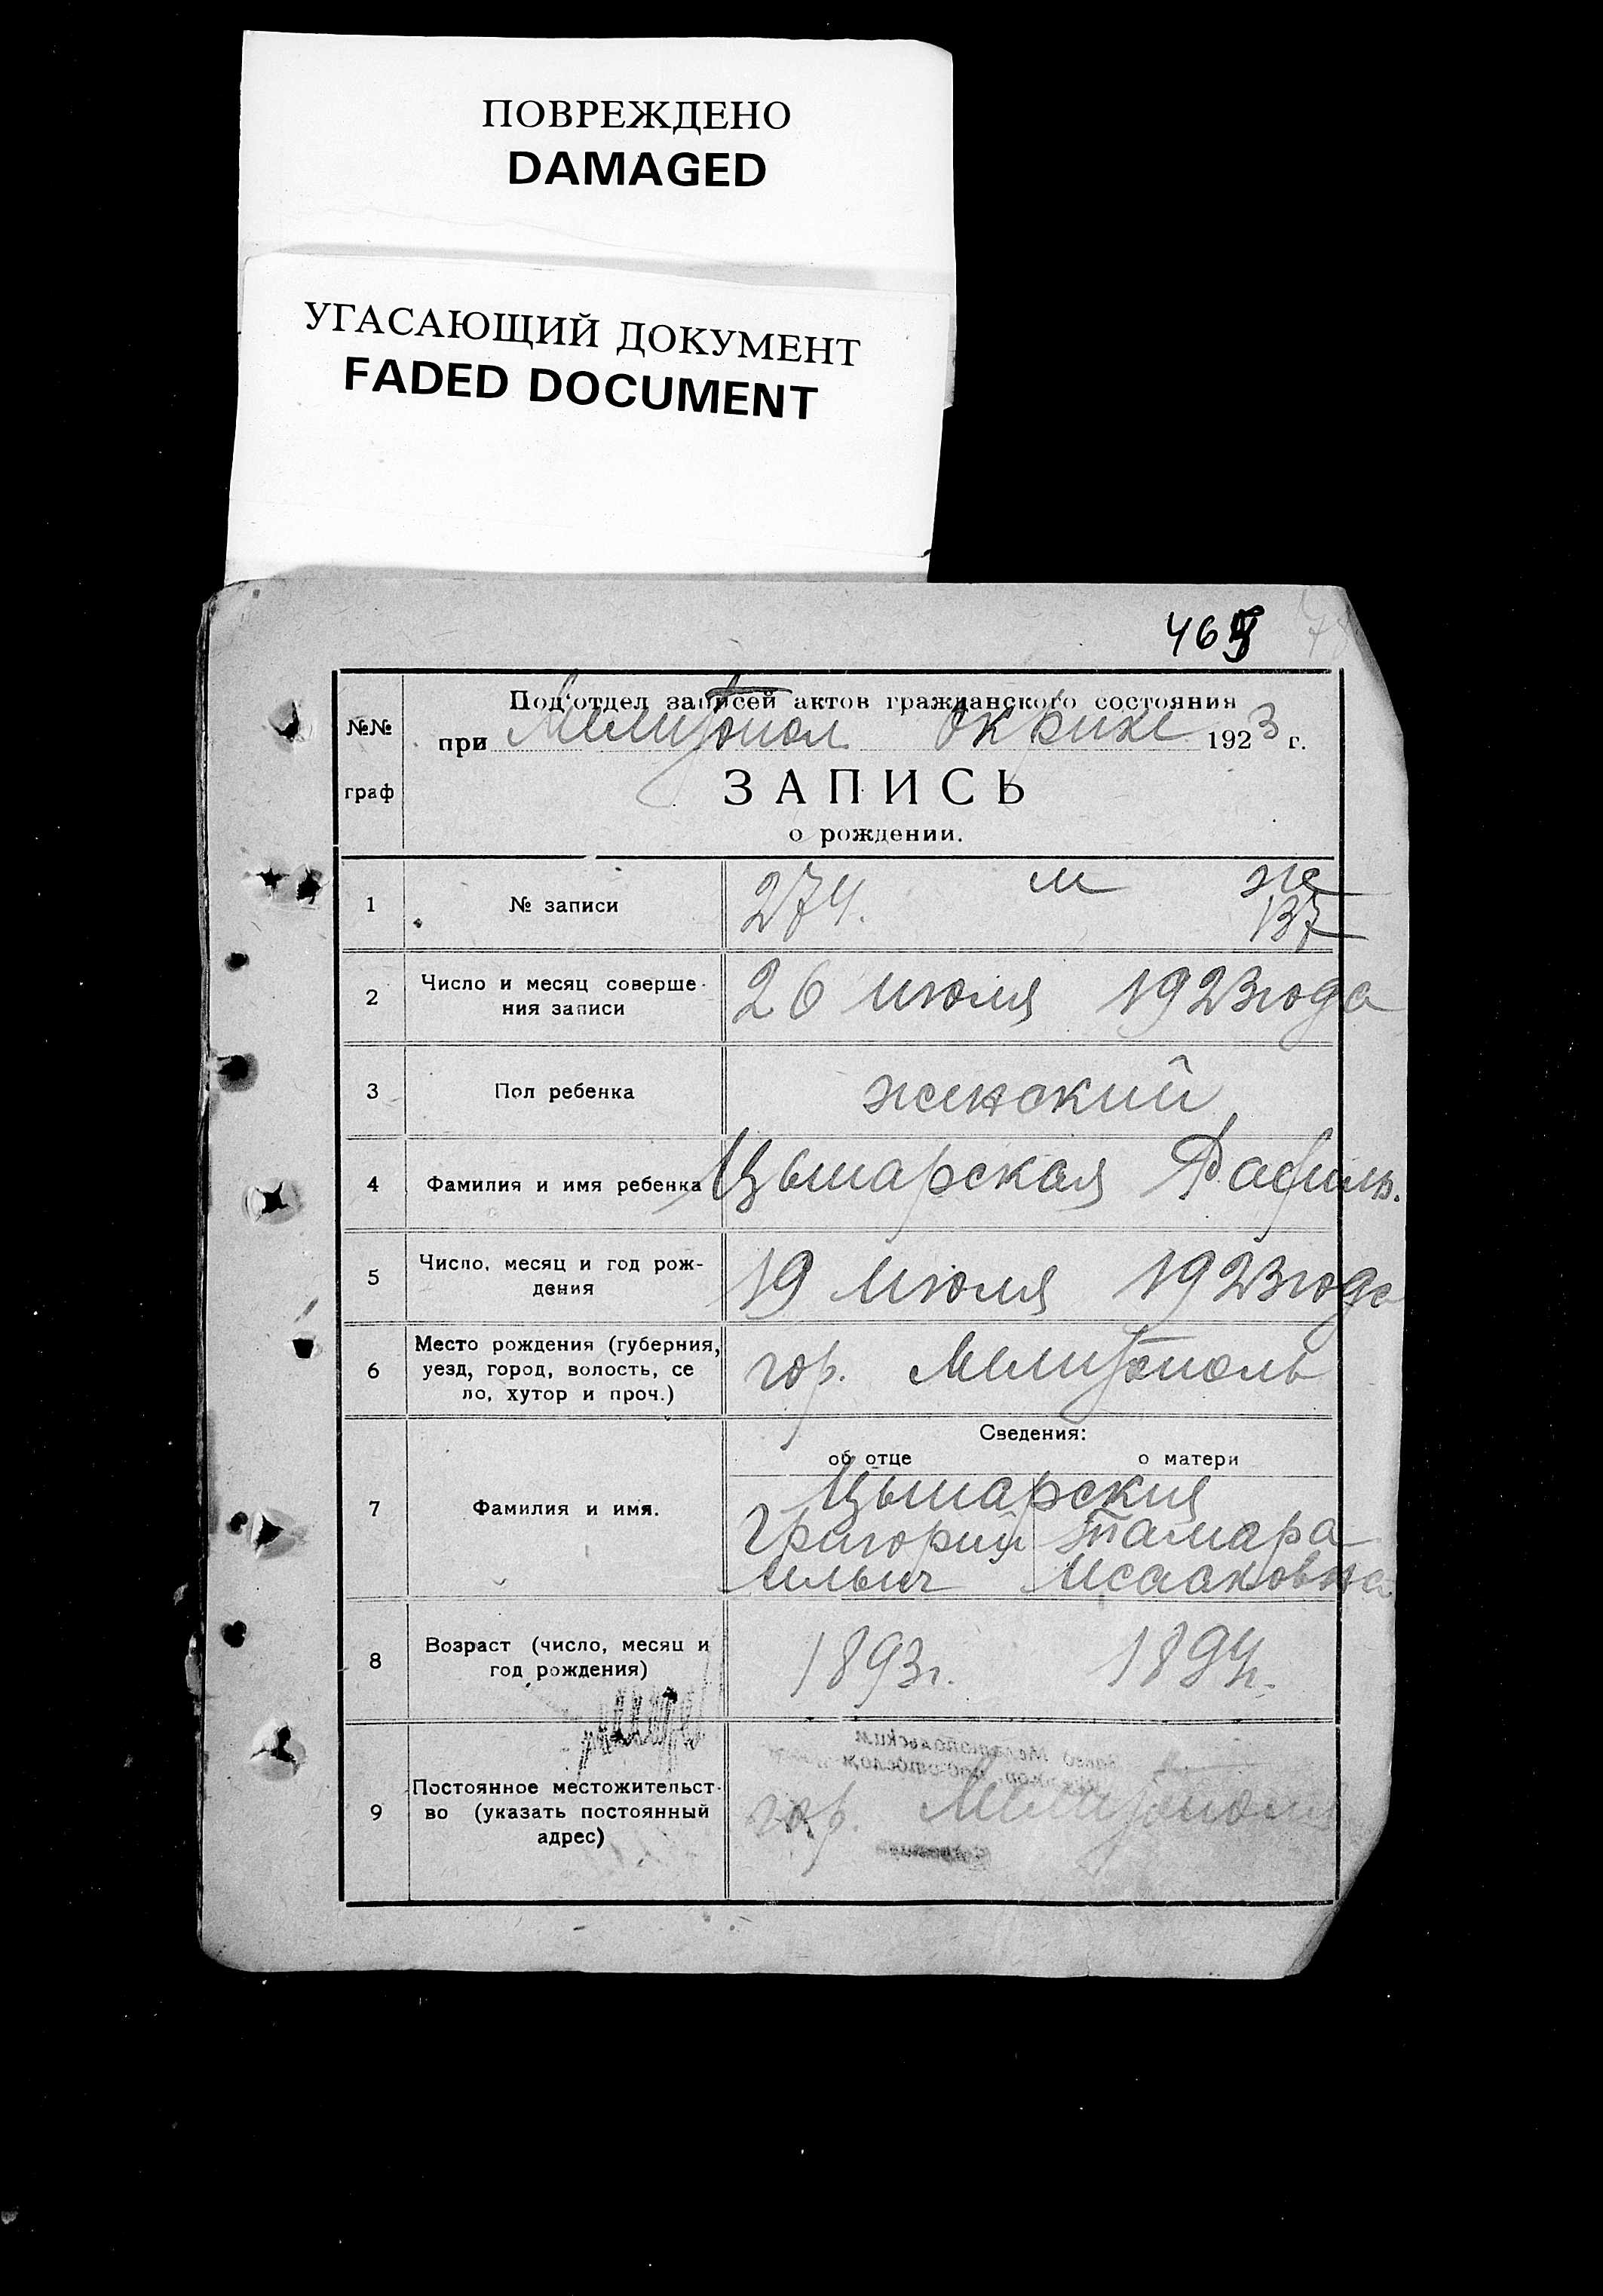 ПОВРЕЖДЕНО
DAMAGED
УГАСАЮЩИЙ ДОКУМЕНТ
FADED DOCUMENT
Под'отдел записей актов гражданского состояния
№№ граф
при Мелитопол 1923 г.
ЗАПИСЬ
о рождении.
м же
1 № записи 274. 137
2 Число и месяц соверше- 26 июля 1923 года
ния записи
3 Пол ребенка женский
4 Фамилия и имя ребенка Цымарская
5 Число, месяц и год рож- 19 июля 1923 года
дения
Место рождения (губерния,
6 уезд, город, волость, се гор. Мелитополь
ло, хутор и проч.)
Сведения:
об отце о матери
Цымарския
7 Фамилия и имя. Григорий Тамара
Ильич Исааковна
8 Возраст (число, месяц и 1893г.
год рождения)
Постоянное местожительст-
9 во (указать постоянный гор. Мелитополь
адрес)